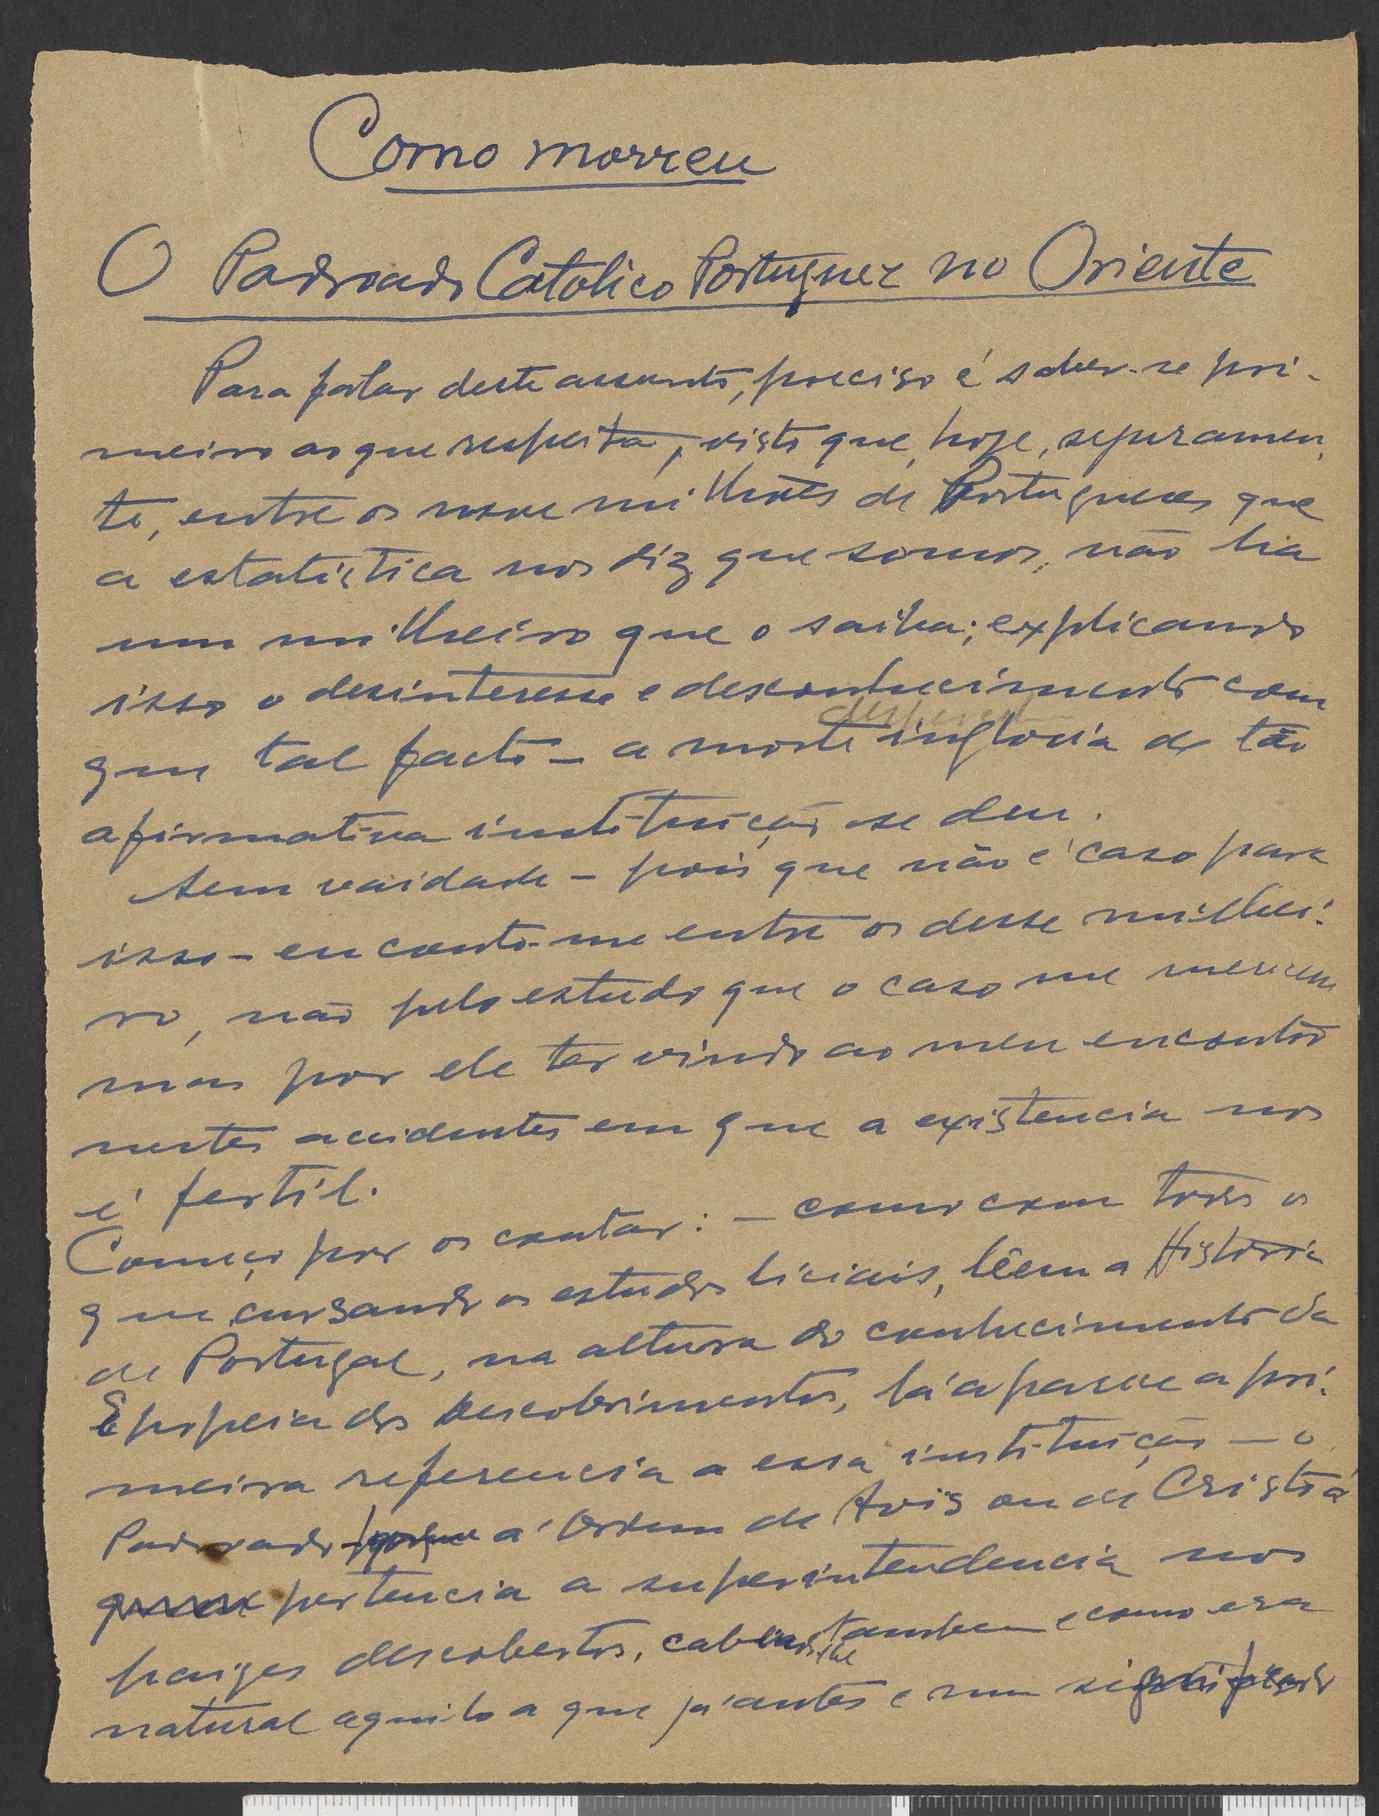 Como morreu
O Padroado Catolico Portuguez no Oriente
Para falar deste assunto, preciso é saber-se pri-
meiro ao que respeita, visto que, hoje, seguramen-
te, entre os nove milhões de Portugueses que
a estatistica nos diz que somos, não ha
um milheiro que o saiba; explicando
isso o desinteresse e desconhecimento com
que tal facto - a morte ingloria de tão
afirmativa instituição se deu.
Sem vaidade - pois que não é caso para
isso - eu conto-me entre os desse milhei-
ro, não pelo estudo que o caso me mereceu
mas por ele ter vindo ao meu encontro
nestes accidentes em que a existencia nos
é fertil.
Começo por os contar: - como com todos os
que cursando os estudos liciais, lêem a Historia
de Portugal, na altura do conhecimento da
Epopeia dos Descobrimentos, lá aparece a pri-
meira referencia a essa instituição - o
Padroado á Ordem de Avis ou de Cristo
pertencia a superintendencia nos
paizes descobertos, cabendo-lhe tambem e como era
natural aquilo a que já antes e num significado